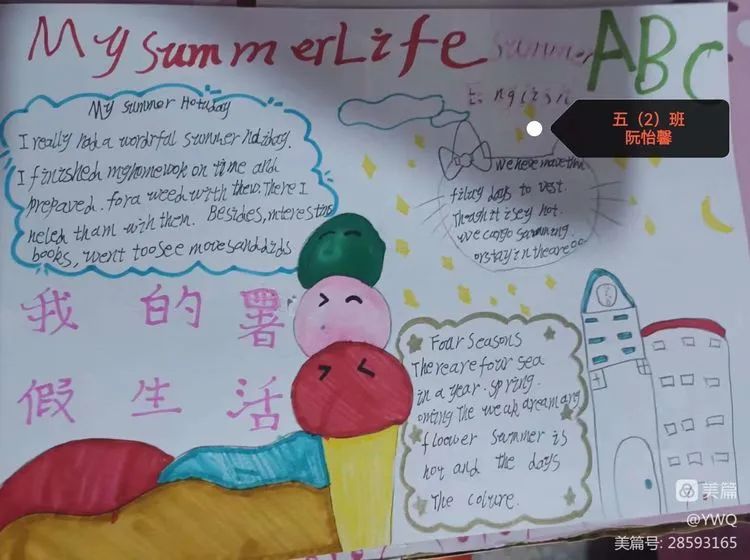 My summerLife
Summer
English
ABC
五（2）班
阮怡馨
My summer Hotuday
I really had a wordrful summer holiday.
I finished myhomewok on time and
prepaved. fora weed with thew. There I
heled tham with them. Besides, nterestins
books, went toosee movesandidds
we have morethn
fifty days to vest.
Though it isey hot.
wve cango swimming.
orstay in theare
我的署
假生活
Four Seasons
Thereare four sea
in a year. spring.
The weak areamarg
flower summer is
hot and the days
The colture.
美篇
@YWQ
美篇号: 28593165